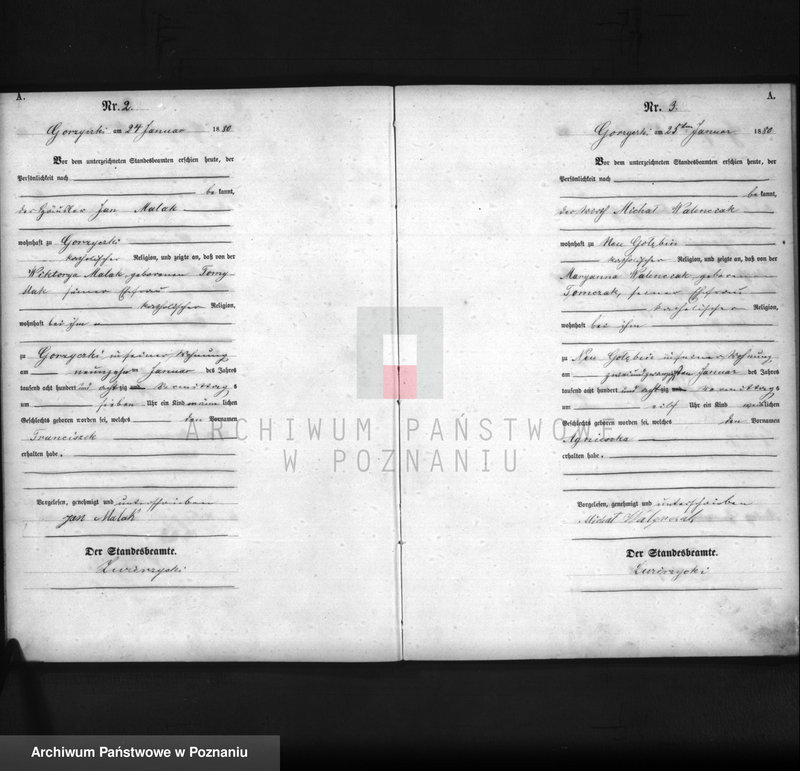 A.
Nr. 2.
am 24 Januar 1880
Vor dem unterzeichneten Standesbeamten erschien heute, der
Persönlichkeit nach
be kannt,
der Häusler Jan Malak
wohnhaft zu Gorzyczki
katholischer Religion, und zeigte an, daß von der
Wiktorya Malak geborenen
seiner Ehefrau
katholischer Religion,
wohnhaft bei ihm
zu Gorzyczki in seiner Wohnung
am neunzehn Januar des Jahres
tausend acht hundert und achtzig Vormittags
um sieben Uhr ein Kind männlichen
Geschlechts geboren worden sei, welches den Vornamen
Franciszek
erhalten habe.
Vorgelesen, genehmigt und unterschrieben
Jan Malak
Der Standesbeamte.
A.
Nr. 3.
am 25ten Januar 1880
Vor dem unterzeichneten Standesbeamten erschien heute, der
Persönlichkeit nach
be kannt,
der Michal Walenczak
wohnhaft zu Neu Golębin
katholischer Religion, und zeigte an, daß von der
Maryanna Walenczak geborenen
Tomczak, seiner Ehefrau
katholischer Religion,
wohnhaft bei ihm
zu Neu Golębin in seiner Wohnung
am zweiundzwanzigsten Januar des Jahres
tausend acht hundert und achtzig Vormittags
um eilf Uhr ein Kind weiblichen
Geschlechts geboren worden sei, welches den Vornamen
Agnieszka
erhalten habe.
Vorgelesen, genehmigt und unterschrieben
Michal
Der Standesbeamte.
ARCHIWUM PAŃSTWOWE
W POZNANIU
Archiwum Państwowe w Poznaniu